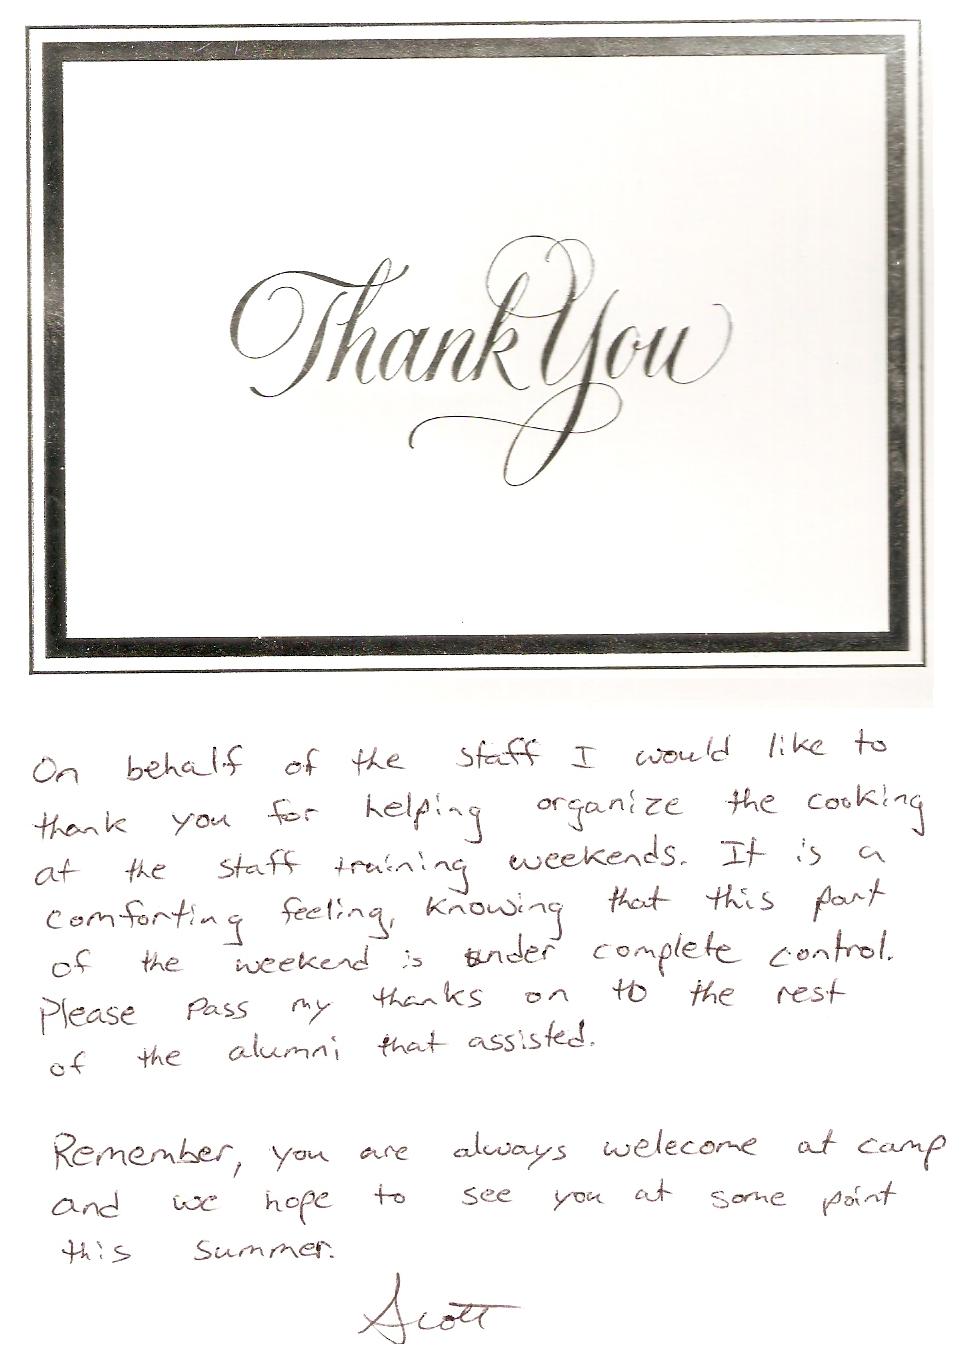 Thank You
On behalf of the staff I would like to
thank you for helping organize the cooking
at the staff training weekends. It is a
comforting feeling, knowing that this part
of the weekend is under complete control.
Please pass my thanks on to the rest
of the alumni that assisted.
Remember, you are always welecome at camp
and we hope to see you at some point
this summer.
Scott